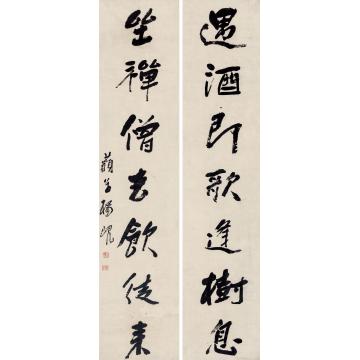 遇酒即歌逢樹息
坐禪僧去飲徒来
蘋生楊峴